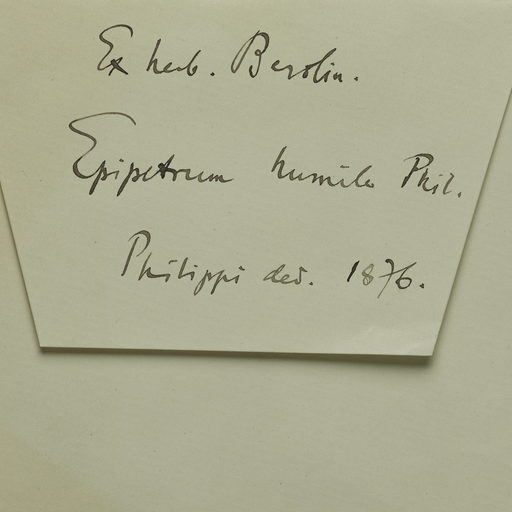 Ex herb. Berolin.
Epipetrum humile Phil.
Philippi ded. 1876.